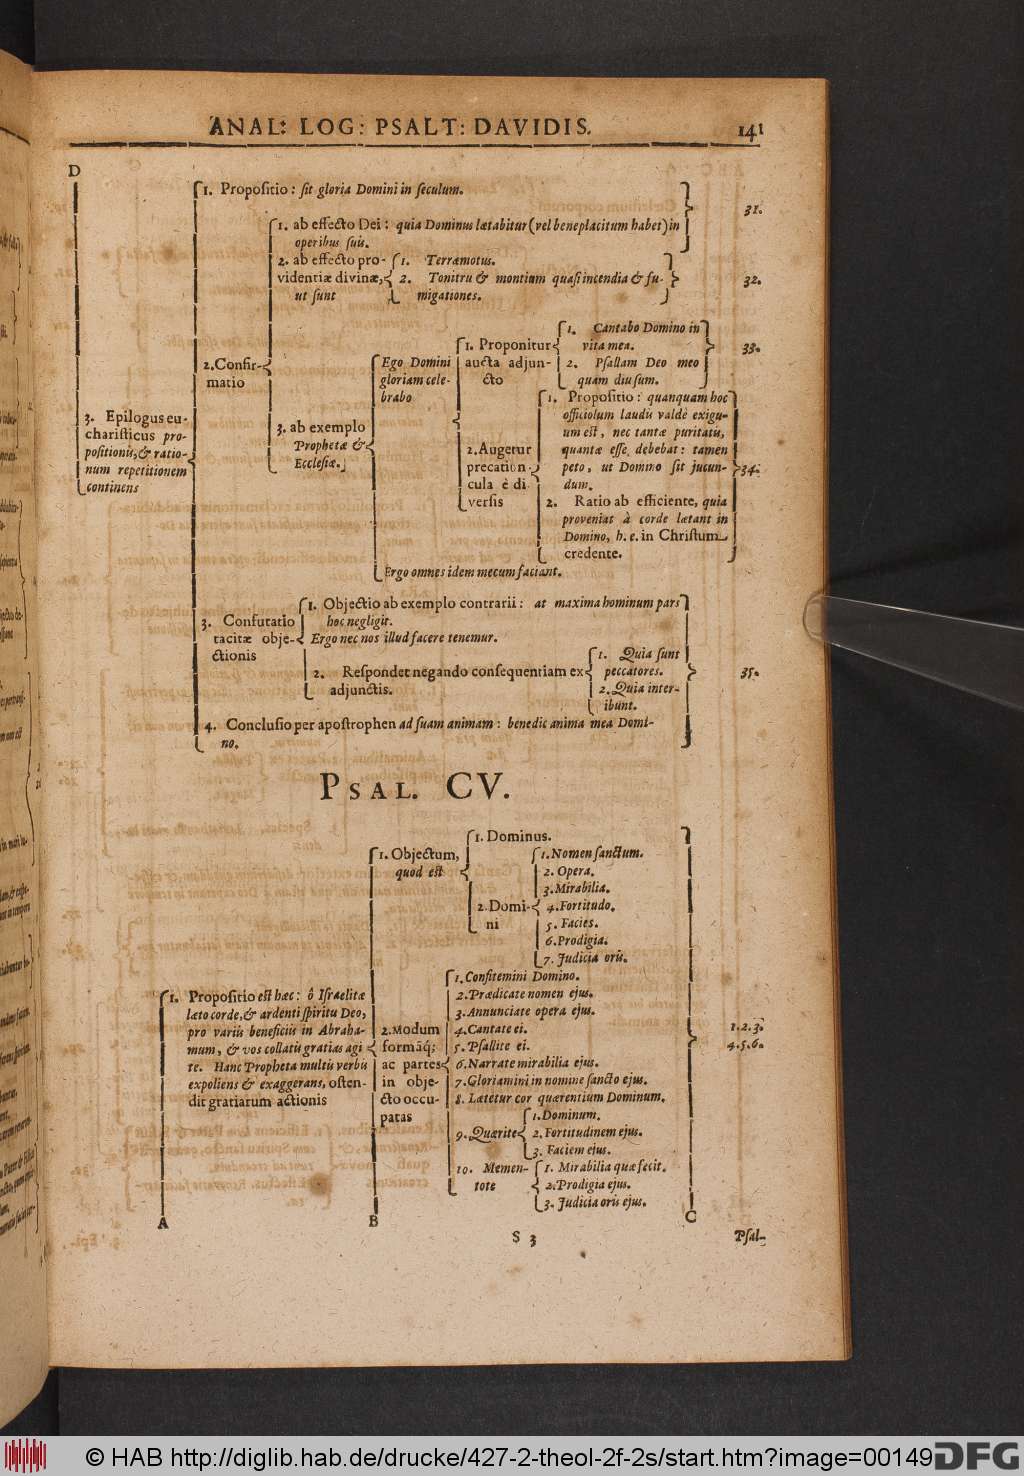 ANAL: LOG: PSALT: DAVIDIS.
141
D
1. Propositio: sit gloria Domini in seculum.
31.
1. ab effecto Dei: quia Dominus lætabitur (vel beneplacitum habet) in
operibus suis.
2. ab effecto pro-
videntiæ divinæ,
ut sunt
1. Terræmotus.
2. Tonitru & montium quasi incendia & fu-
migationes.
32.
2. Confir-
matio
3. ab exemplo
Prophetæ &
Ecclesiæ.
Ego Domini
gloriam cele-
brabo
1. Proponitur
aucta adjun-
cto
1. Cantabo Domino in
vita mea.
2. Psallam Deo meo
quam diu sum.
33.
2. Augetur
precation-
cula è di-
versis
1. Propositio: quanquam hoc
officiolum laudis valdè exigu-
um est, nec tantæ puritatis,
quantæ esse debebat: tamen
peto, ut Domino sit jucun-
dum.
2. Ratio ab efficiente, quia
proveniat à corde lætant in
Domino, h. e. in Christum
credente.
34.
Ergo omnes idem mecum faciant.
3. Epilogus eu-
charisticus pro-
positionis, & ratio-
num repetitionem
continens
3. Confutatio
tacitæ obje-
ctionis
1. Objectio ab exemplo contrarii: at maxima hominum pars
hoc negligit.
Ergo nec nos illud facere tenemur.
2. Respondet negando consequentiam ex
adjunctis.
1. Quia sunt
peccatores.
2. Quia inter-
ibunt.
35.
4. Conclusio per apostrophen ad suam animam: benedic anima mea Domi-
no.
PSAL. CV.
1. Propositio est hæc: ô Israelitæ
læto corde, & ardenti spiritu Deo,
pro variis beneficiis in Abraha-
mum, & vos collatis gratias agi
te. Hanc Propheta multis verbis
expoliens & exaggerans, osten-
dit gratiarum actionis
1. Objectum,
quod est
1. Dominus.
2. Domi-
ni
1. Nomen sanctum.
2. Opera.
3. Mirabilia.
4. Fortitudo.
5. Facies.
6. Prodigia.
7. Judicia oris.
2. Modum
formāq́;
ac partes
in obje-
cto occu-
patas
1. Confitemini Domino.
2. Prædicate nomen ejus.
3. Annunciate opera ejus.
4. Cantate ei.
5. Psallite ei.
6. Narrate mirabilia ejus.
7. Gloriamini in nomine sancto ejus.
8. Lætetur cor quærentium Dominum.
9. Quærite
1. Dominum.
2. Fortitudinem ejus.
3. Faciem ejus.
10. Memen-
tote
1. Mirabilia quæ fecit.
2. Prodigia ejus.
3. Judicia oris ejus.
1. 2. 3.
4. 5. 6.
A
B
C
S 3
Psal-
© HAB http://diglib.hab.de/drucke/427-2-theol-2f-2s/start.htm?image=00149
DFG